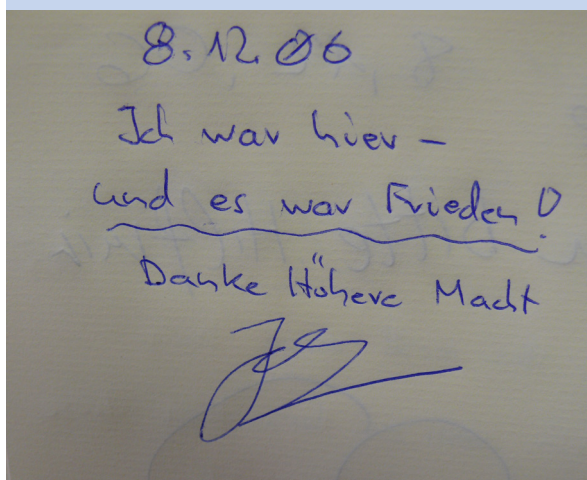 8.12.06
Ich war hier –
und es war Frieden!
Danke Höhere Macht